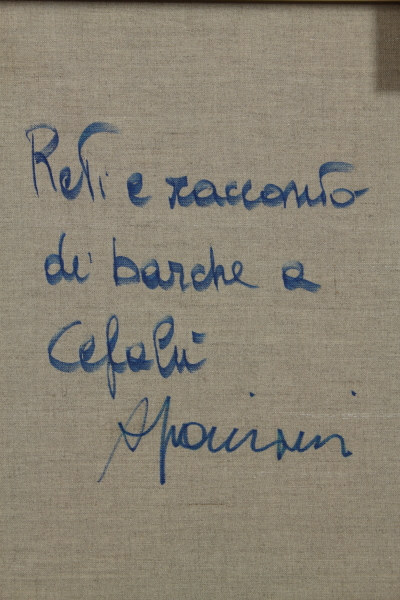 Reti e racconto
di barche a
Cefalù